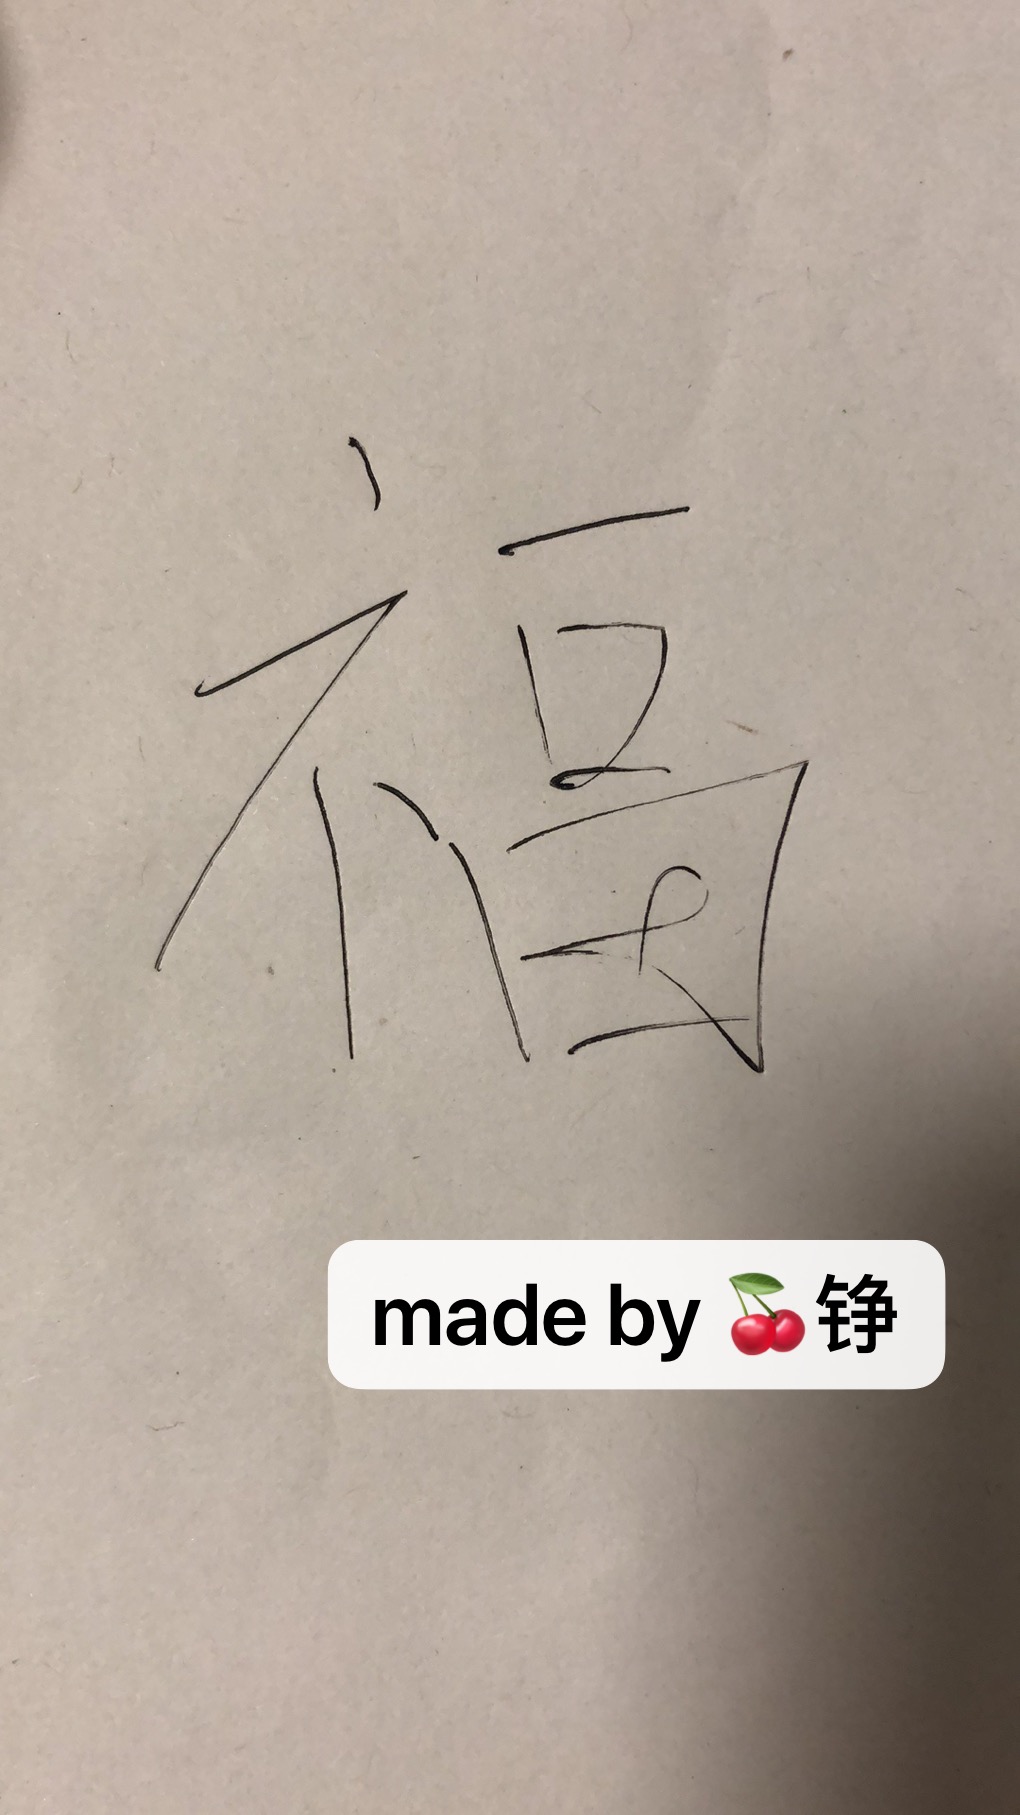 福
made by 🍒铮